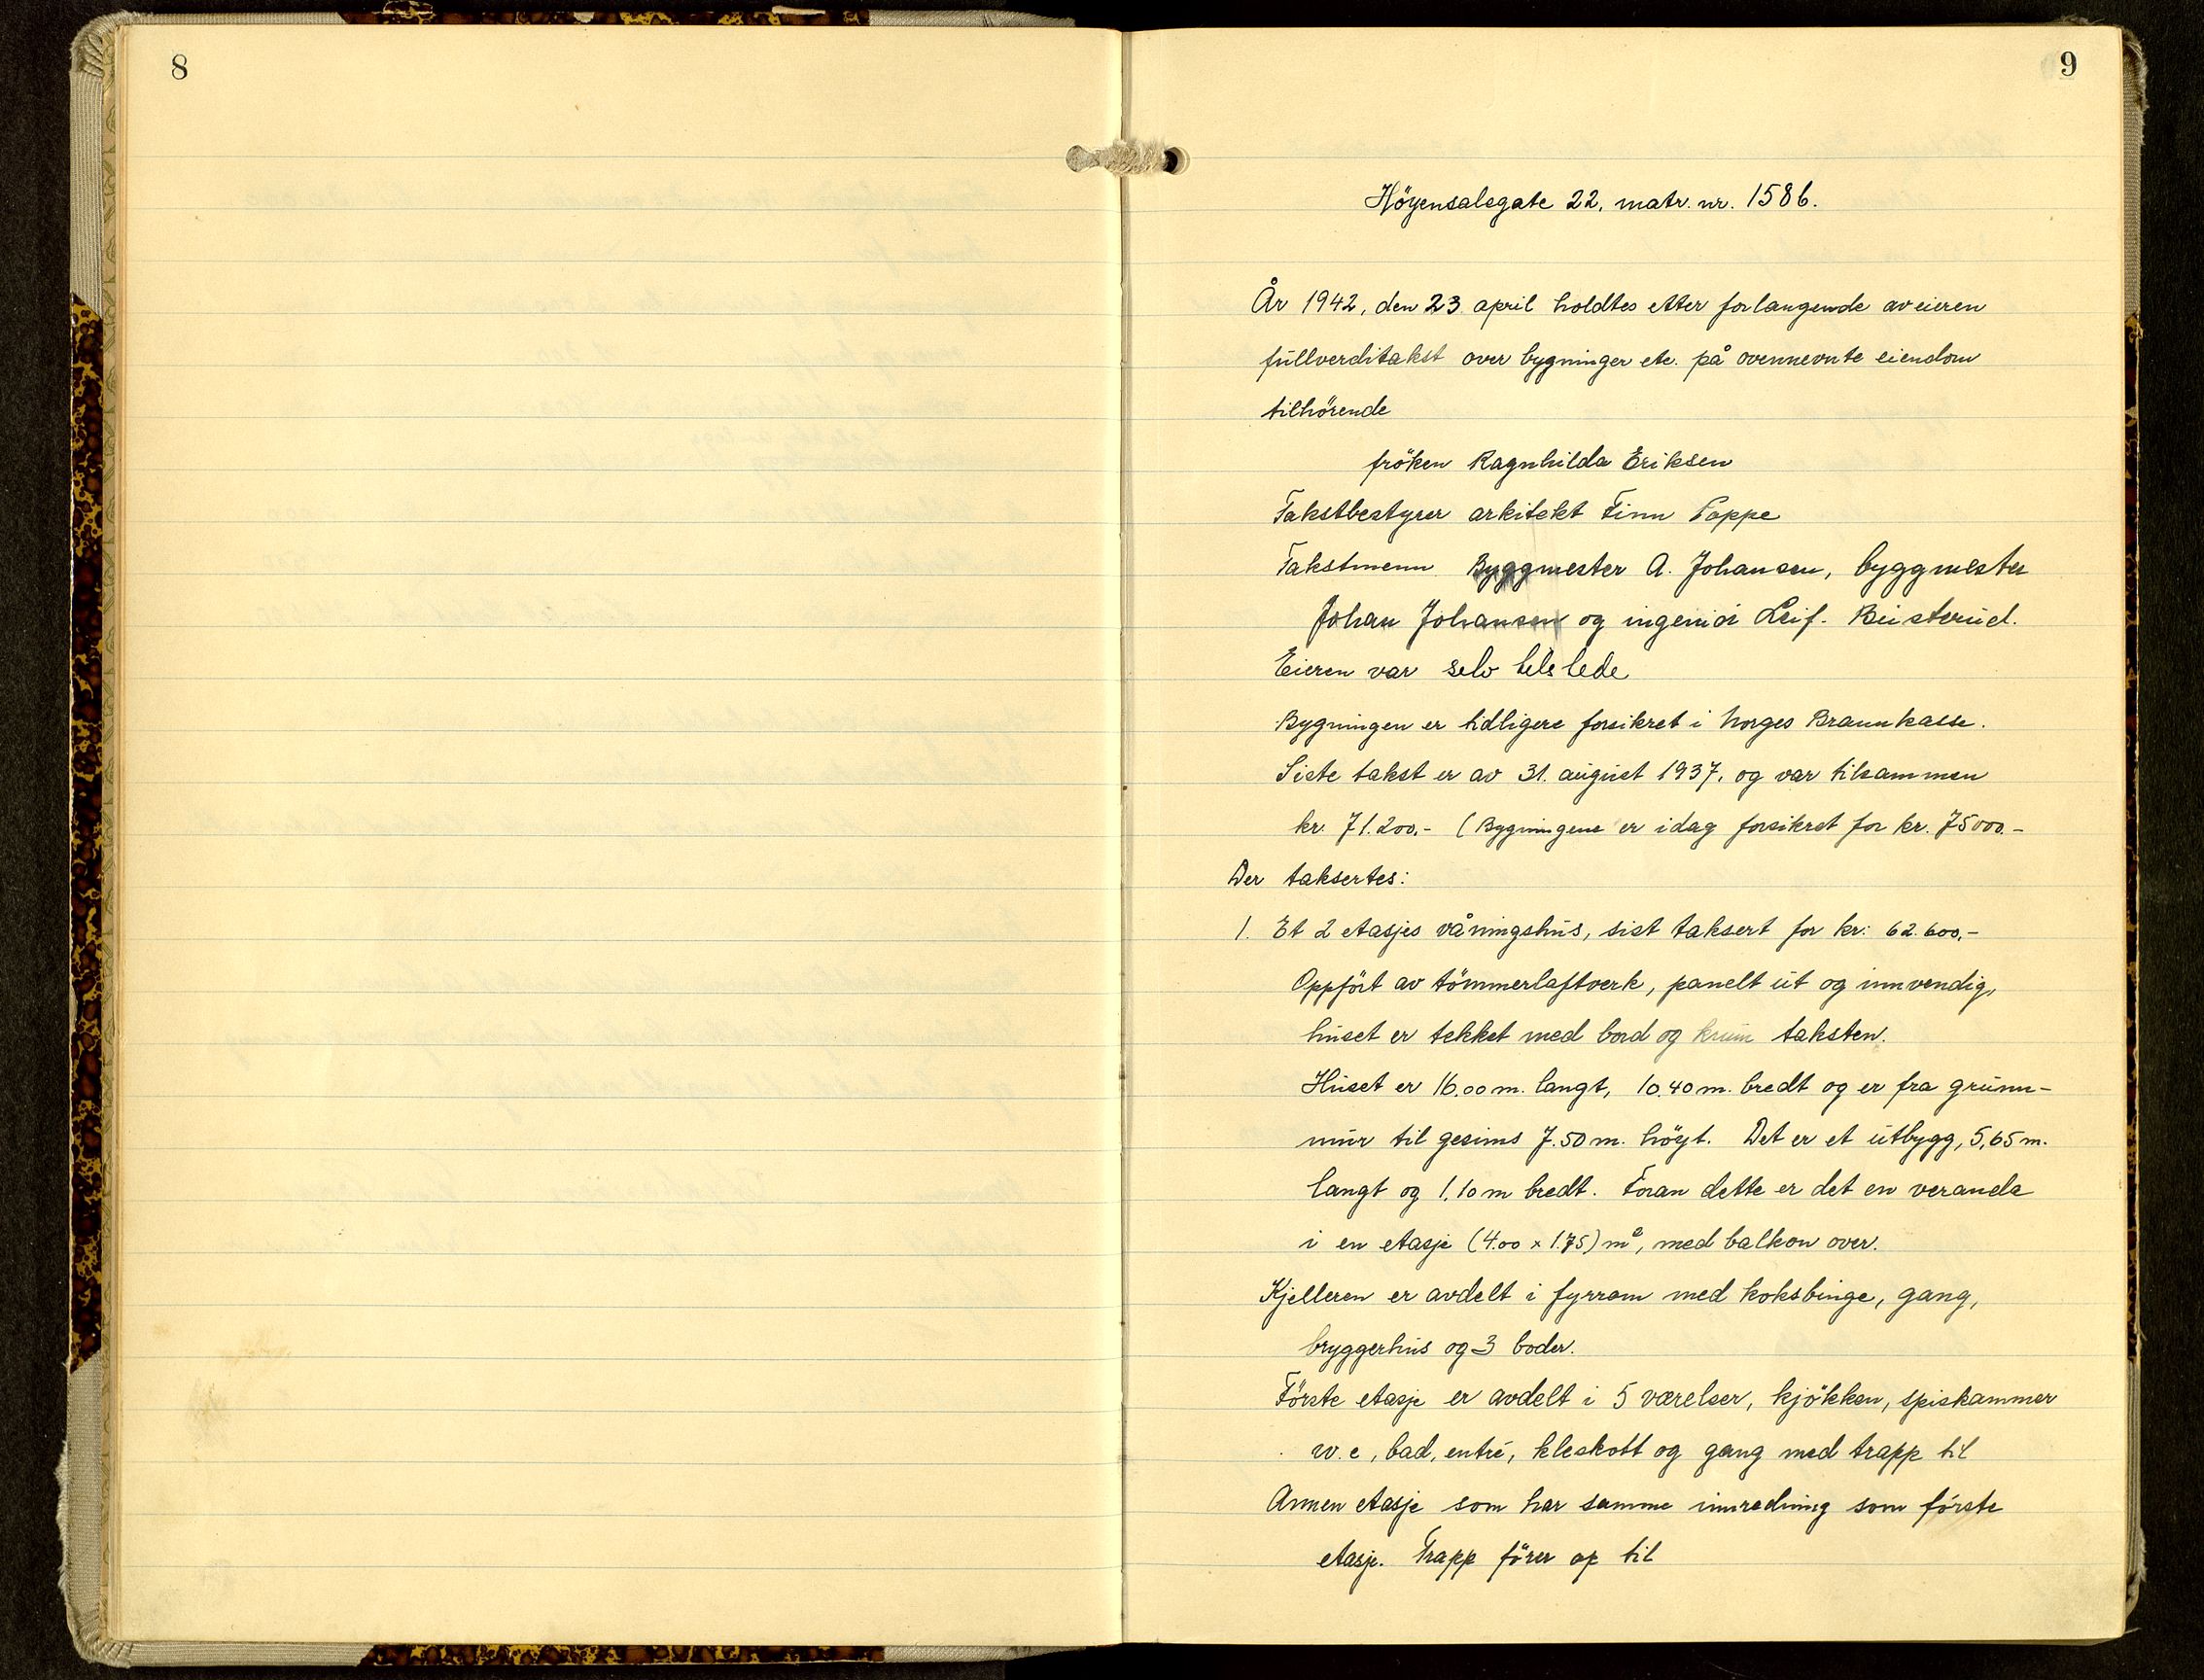 8
9
Höyensalsgate 22, matr. nr. 1586.
År 1942, den 23. april holdtes etter forlangende av eieren
fullverditakst over bygninger etc. på ovennevnte eiendom
tilhörende
fröken Ragnhilda Eriksen
Takstbestyrer arkitekt Finn Poppe
Takstmenn Byggmester A. Johansen, byggmester
Johan Johansen og ingeniör Leif. Busterud.
Eieren var selv tilstede
Bygningen er tidligere forsikret i Norges Brannkasse.
Siste takst er av 31. august 1937, og var tilsammen
kr. 71.200,- (Bygningene er idag forsikret for kr. 75000.-
Der taksertes:
1. Et 2 etasjes våningshus, sist taksert for kr: 62.600,-
Oppfört av tömmerlaftverk, panelt ut og innvendig,
huset er tekket med bord og krum taksten.
Huset er 16.00 m. langt, 10.40 m. bredt og er fra grunn-
mur til gesims 7.50 m. höyt. Det er et utbygg, 5,65 m.
langt og 1.10 m bredt. Foran dette er det en veranda
i en etasje (4.00 x 1.75) m², med balkon over.
Kjelleren er avdelt i fyrrom med koksbinge, gang,
bryggerhus og 3 boder.
Förste etasje er avdelt i 5 værelser, kjökken, spiskammer
w.c, bad, entré, kleskott og gang med trapp til
Annen etasje som har samme innredning som förste
etasje. Trapp förer op til